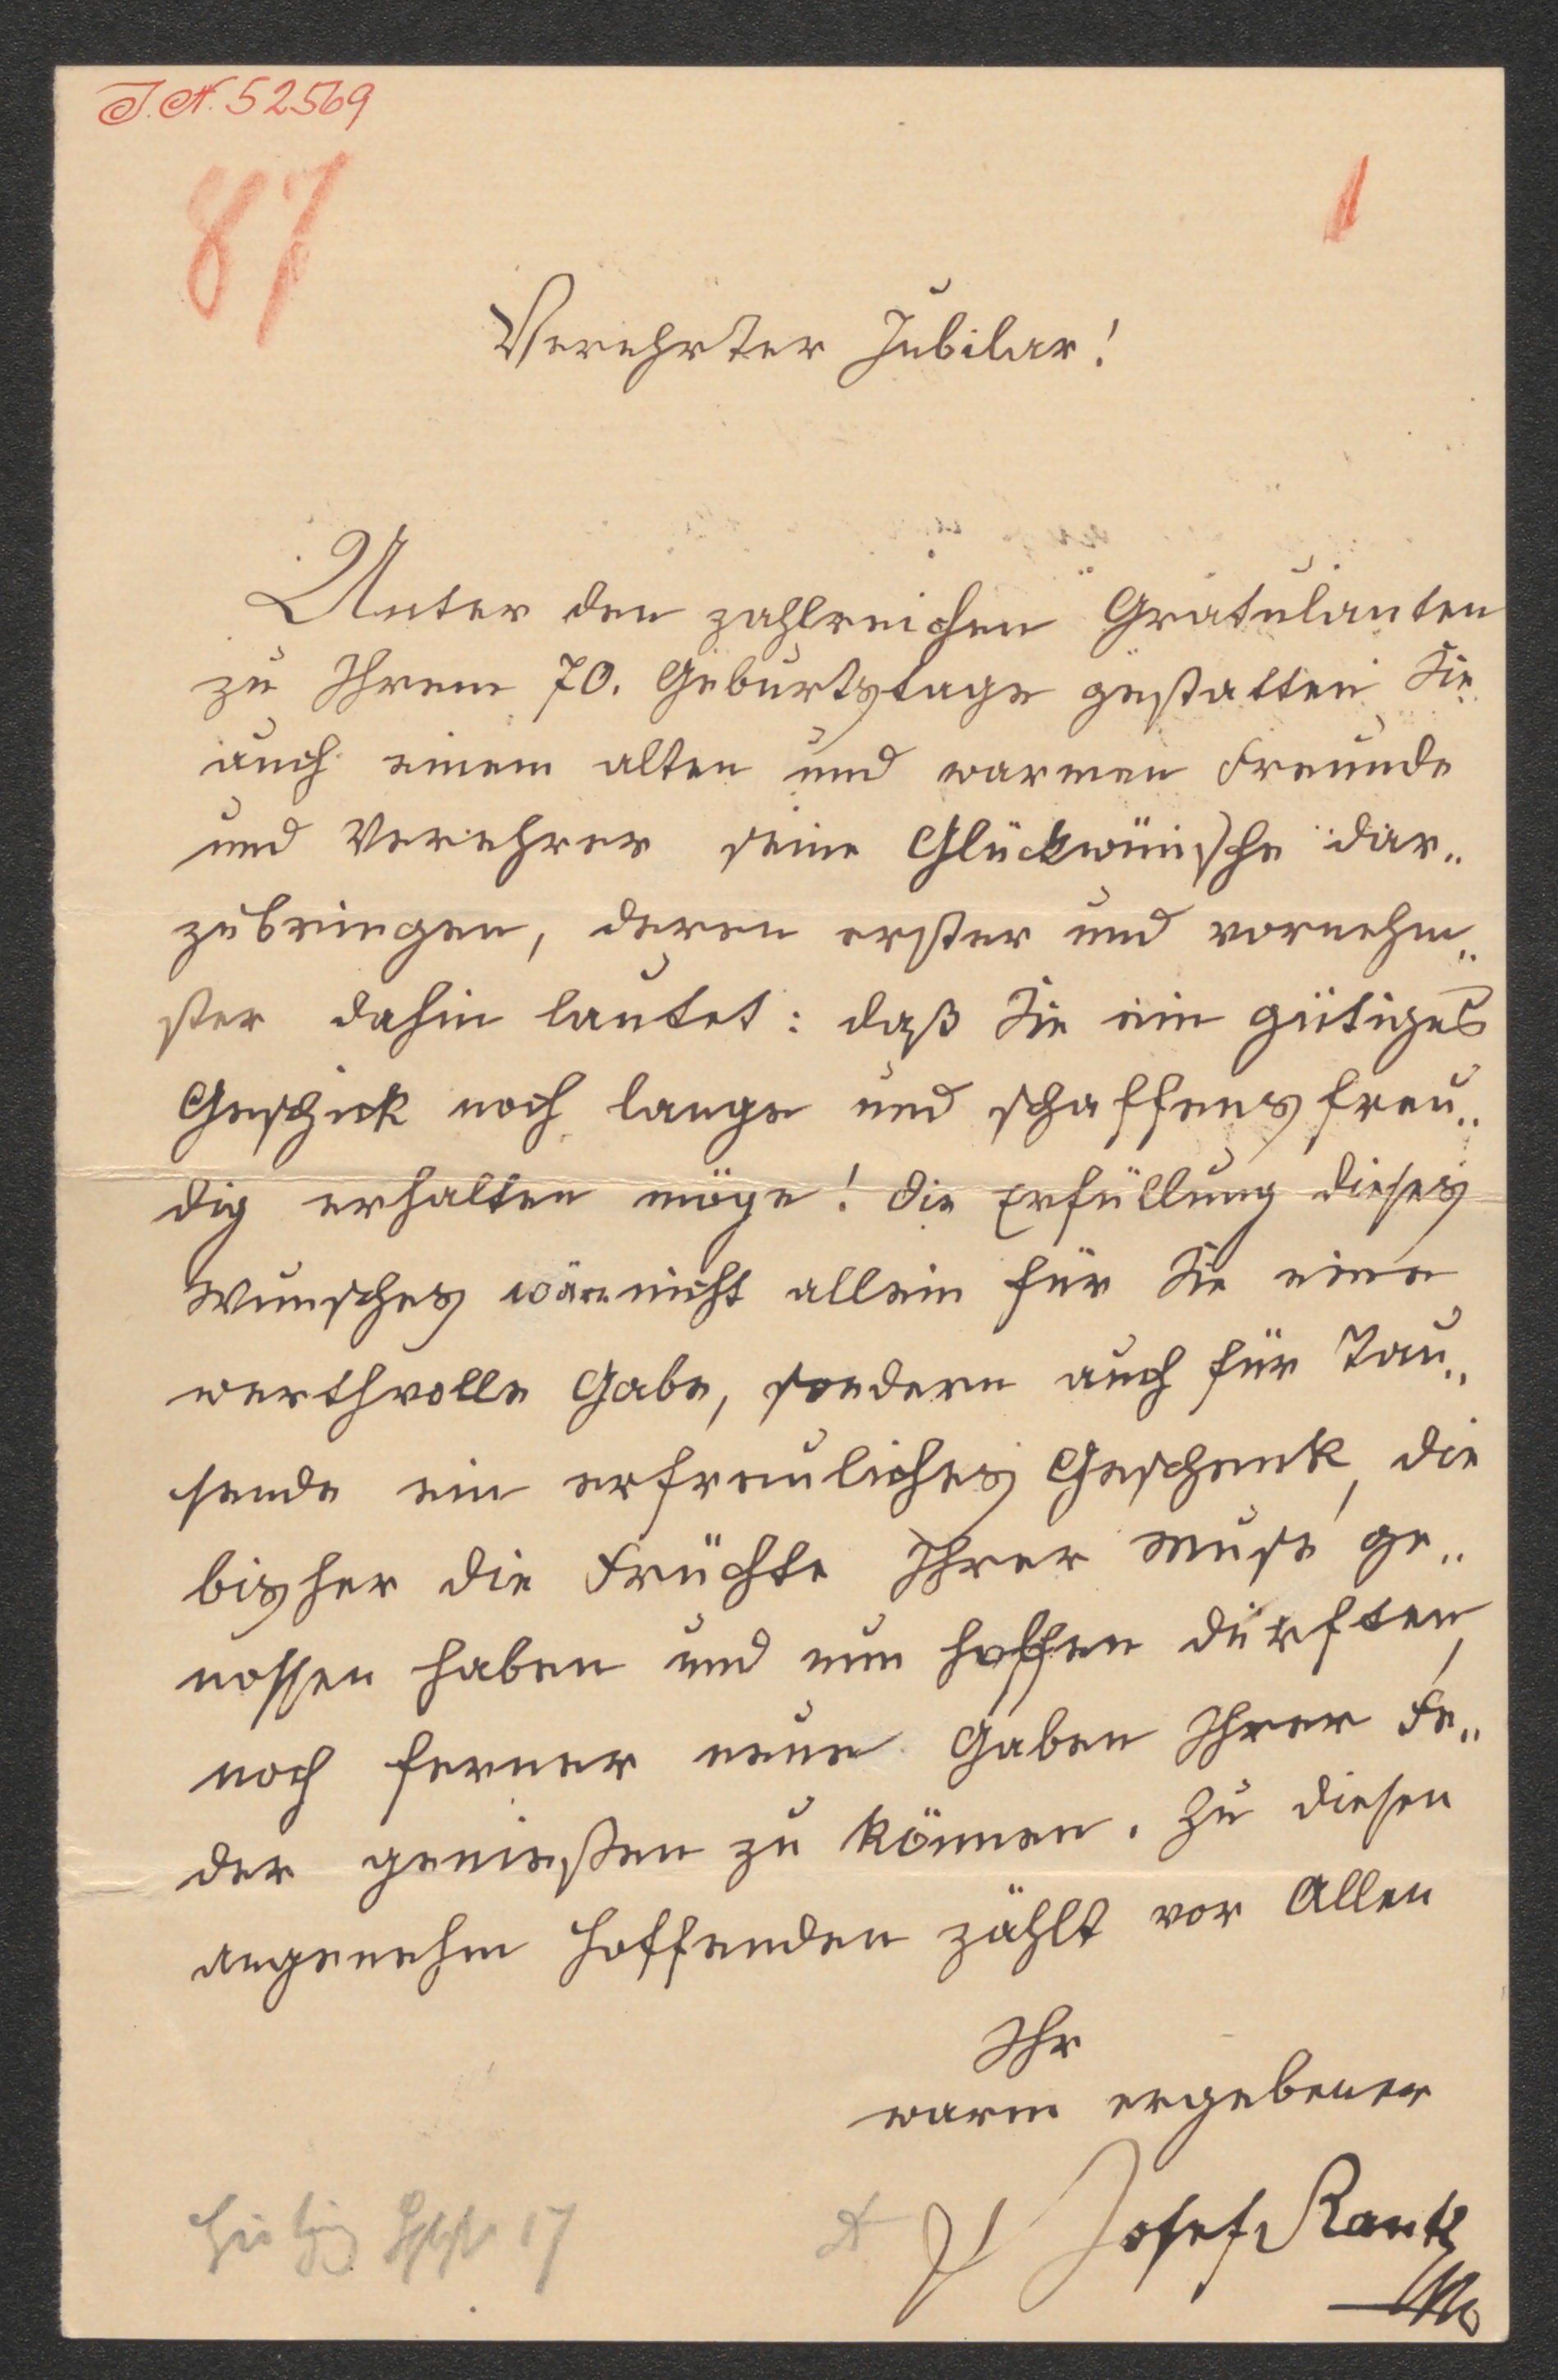 J.N. 52569
87
1
Verehrter Jubilar!
Unter den zahlreichen Gratulanten
zu Ihrem 70. Geburtstage gestatten Sie
auch einem alten und warmen Freunde
und Verehrer seine Glückwünsche dar„
zubringen, deren erster und vornehm„
ster dahin lautet: daß Sie ein gütiges
Geschick noch lange und schaffensfreu„
dig erhalten möge! Die Erfüllung dieses
Wunsches wäre nicht allein für Sie eine
werthvolle Gabe, sondern auch für Tau„
sende ein erfreuliches Geschenk, die
bisher die Früchte Ihrer Muse ge„
nossen haben und nun hoffen dürften,
noch ferner neue Gaben Ihrer Fe„
der genießen zu können. Zu diesen
angenehm Hoffenden zählt vor Allen
Ihr
warm ergebener
Josef Rank
17